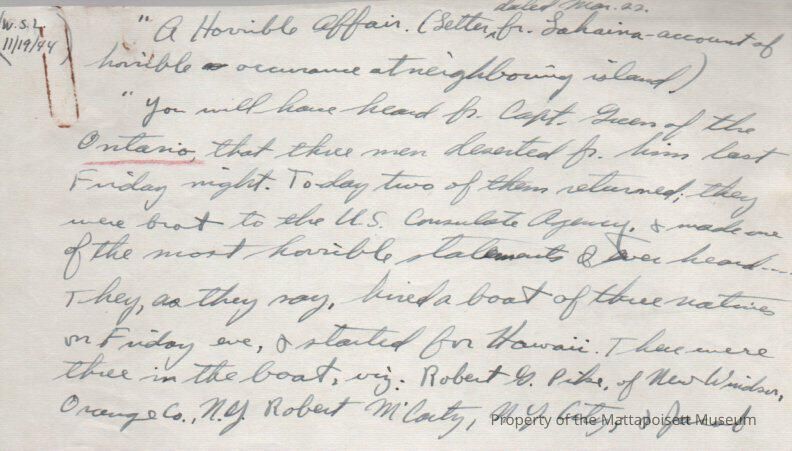 dated Mar. 22.
W.S.L.
11/19/44
"A Horrible Affair. (Letter, fr. Lahaina - account of
horrible occurance at neighbouring island.)
"You will have heard fr. Capt. Green of the
Ontario, that three men deserted fr. him last
Friday night. Today two of them returned; they
were brot to the U.S. Consulate Agency, & made one
of the most horrible statements I ever heard----
They, as they say, hired a boat of three natives
on Friday eve, & started for Hawaii. There were
three in the boat, viz: Robert G. Pike, of New Windsor,
Orange Co., N.Y. Robert McCarty, N.Y. City, &
Property of the Mattapoisett Museum